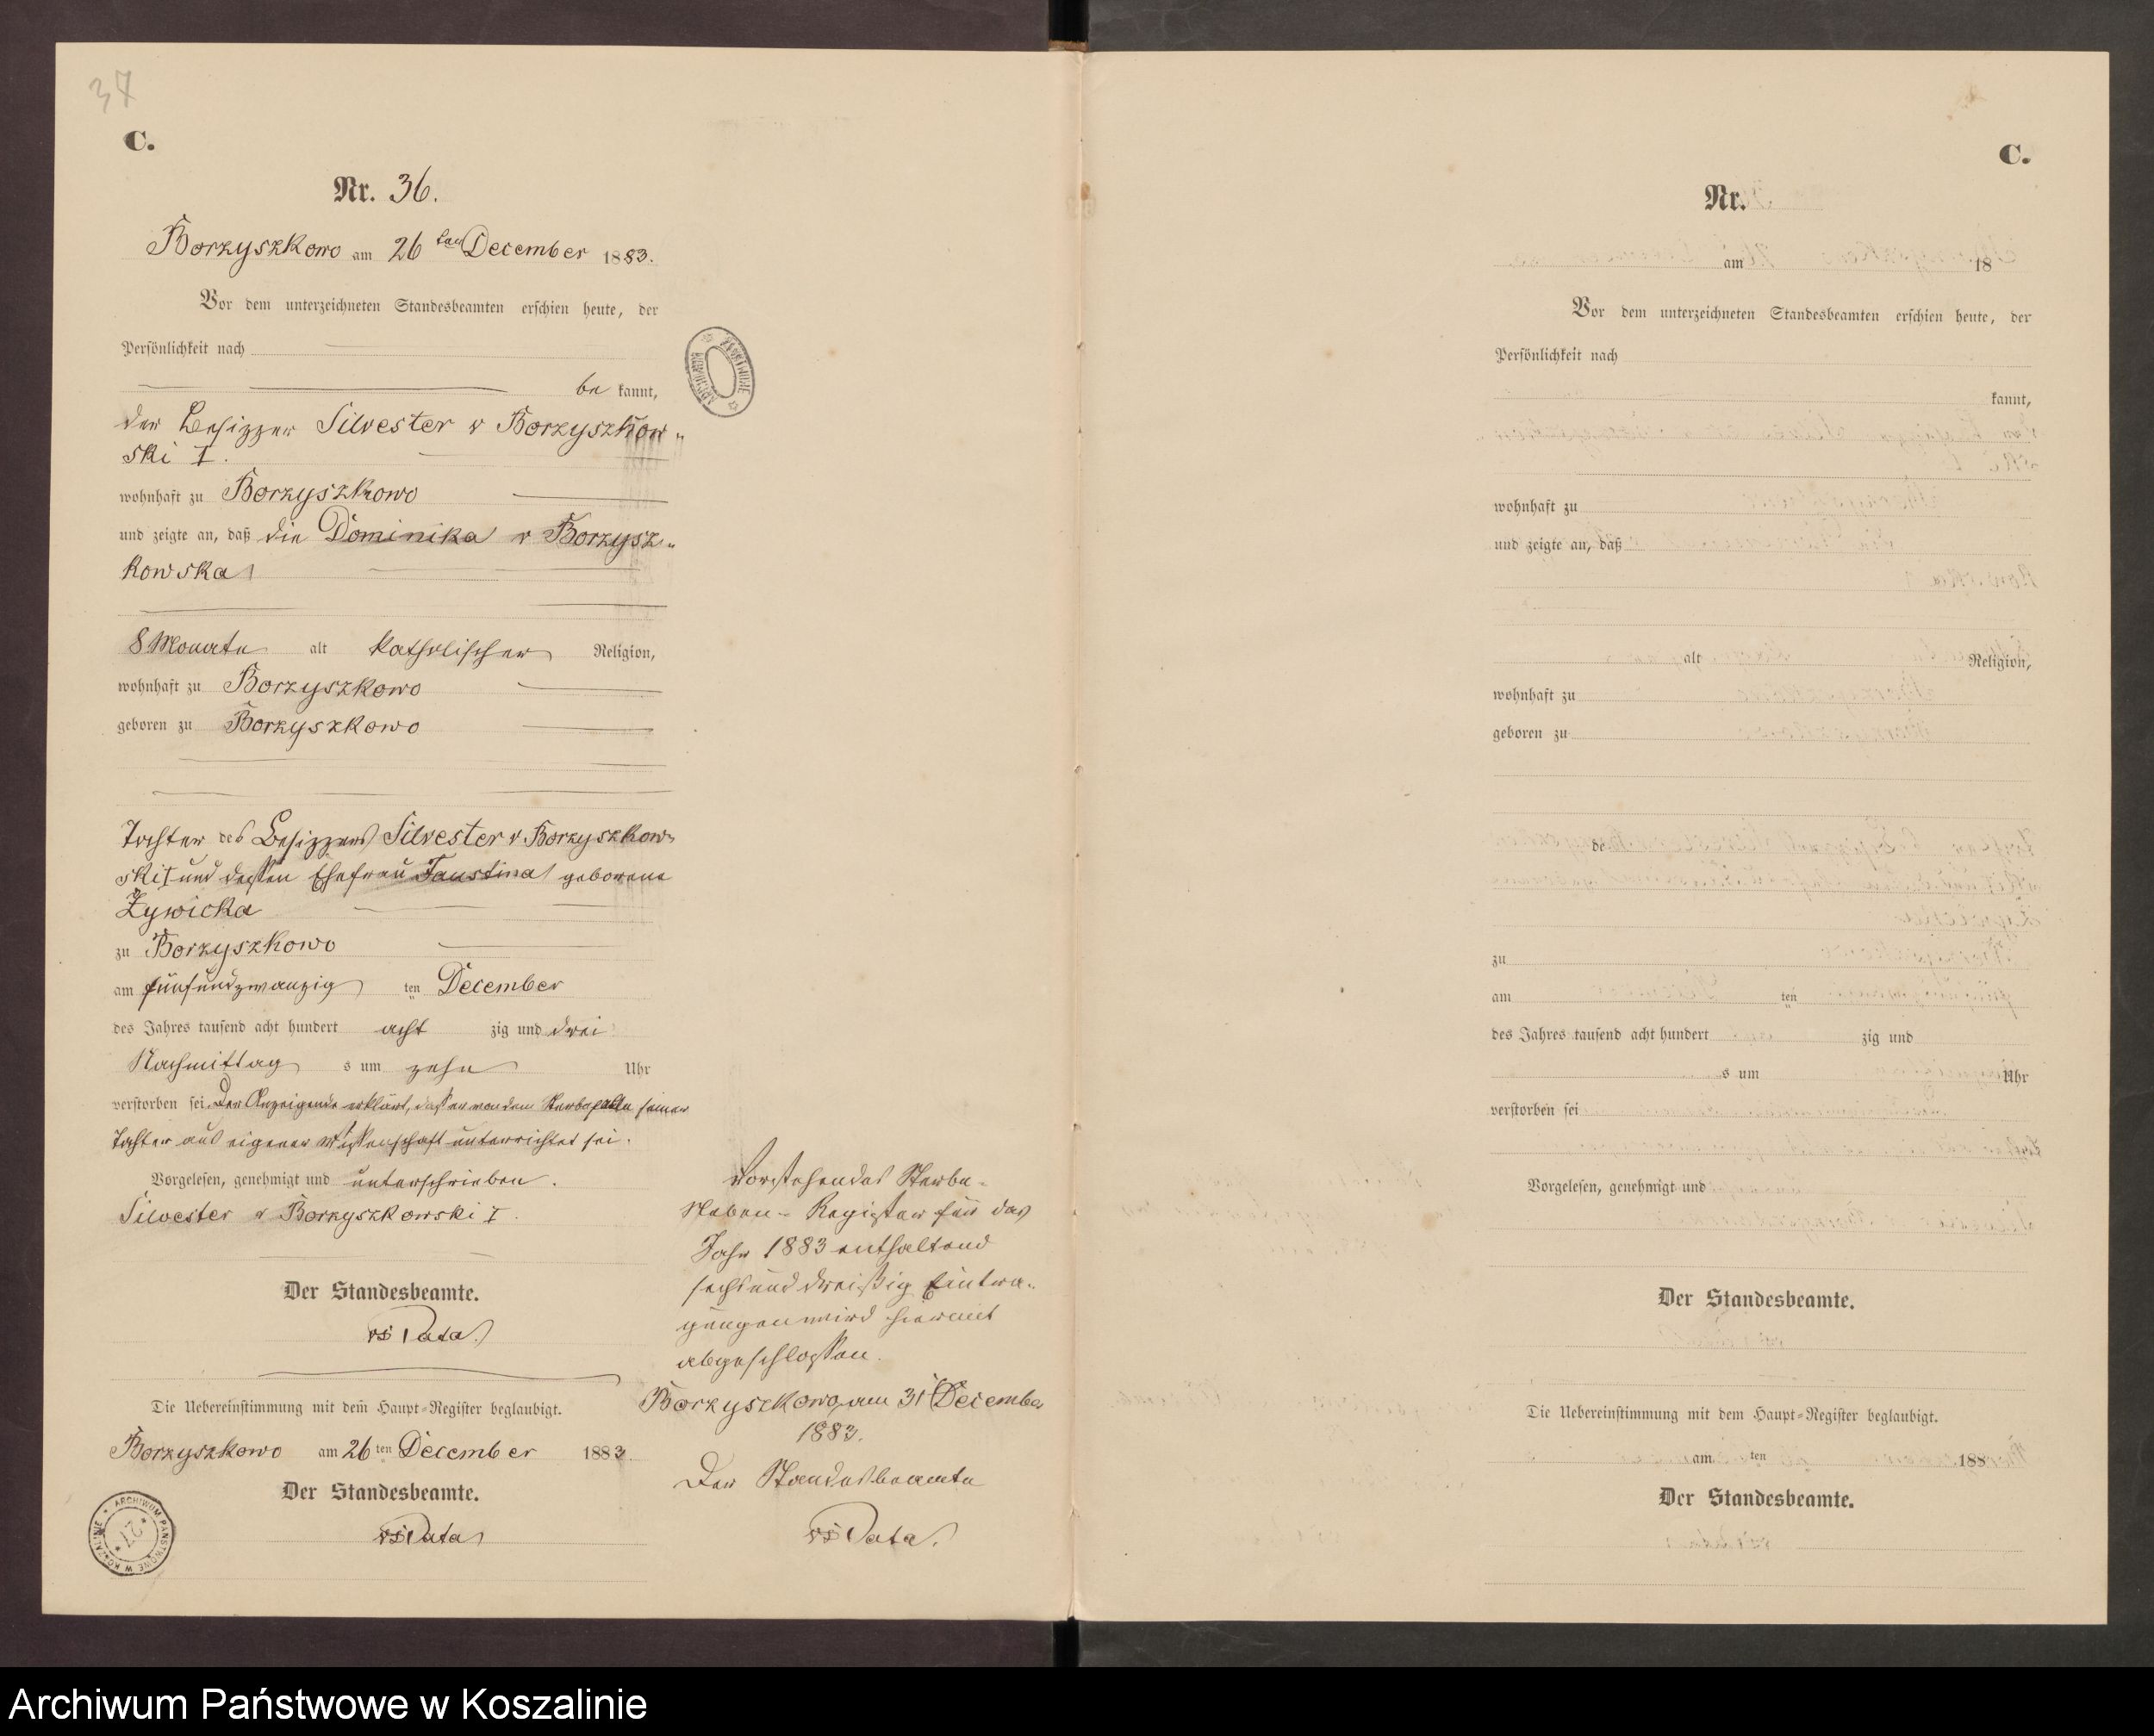 37
C.
Nr. 36.
Borzyszkowo am 26ten December 1883.
Vor dem unterzeichneten Standesbeamten erschien heute, der
Persönlichkeit nach
be kannt,
der Besizzer Silvester v Borzyszkow„
ski I.
wohnhaft zu Borzyszkowo
und zeigte an, daß die Dominika v Borzysz„
kowska
8 Monate alt katholischer Religion,
wohnhaft zu Borzyszkowo
geboren zu Borzyszkowo
Tochter des Besizzers Silvester v Borzyszkow„
ski I und dessen Ehefrau Faustina geborene
Żywicka
zu Borzyszkowo
am fünfundzwanzig ten December
des Jahres tausend acht hundert acht zig und drei
Nachmittag s um zehn Uhr
verstorben sei. Der Anzeigende erklärt, daß er von dem Sterbefalle seiner
Tochter aus eigener Wissenschaft unterrichtet sei.
Vorgelesen, genehmigt und unterschrieben.
Silvester v Borzyszkowski I.
Der Standesbeamte.
Pata.
Die Uebereinstimmung mit dem Haupt-Register beglaubigt.
Borzyszkowo am 26 ten December 1883
Der Standesbeamte.
Pata
ARCHIWUM PAŃSTWOWE W KOSZALINIE
27
ARCHIWUM PAŃSTWOWE
Vorstehendes Sterbe-
Neben-Register für das
Jahr 1883 enthaltend
sechsunddreißig Eintra-
gungen wird hiermit
abgeschlossen.
Borzyszkowo, am 31 December
1883.
Der Standesbeamte
Pata.
C.
Nr.
am 18
Vor dem unterzeichneten Standesbeamten erschien heute, der
Persönlichkeit nach
kannt,
wohnhaft zu
und zeigte an, daß
alt Religion,
wohnhaft zu
geboren zu
de
zu
am ten
des Jahres tausend acht hundert zig und
s um Uhr
verstorben sei
Vorgelesen, genehmigt und
Der Standesbeamte.
Die Uebereinstimmung mit dem Haupt-Register beglaubigt.
am ten 188
Der Standesbeamte.
Archiwum Państwowe w Koszalinie